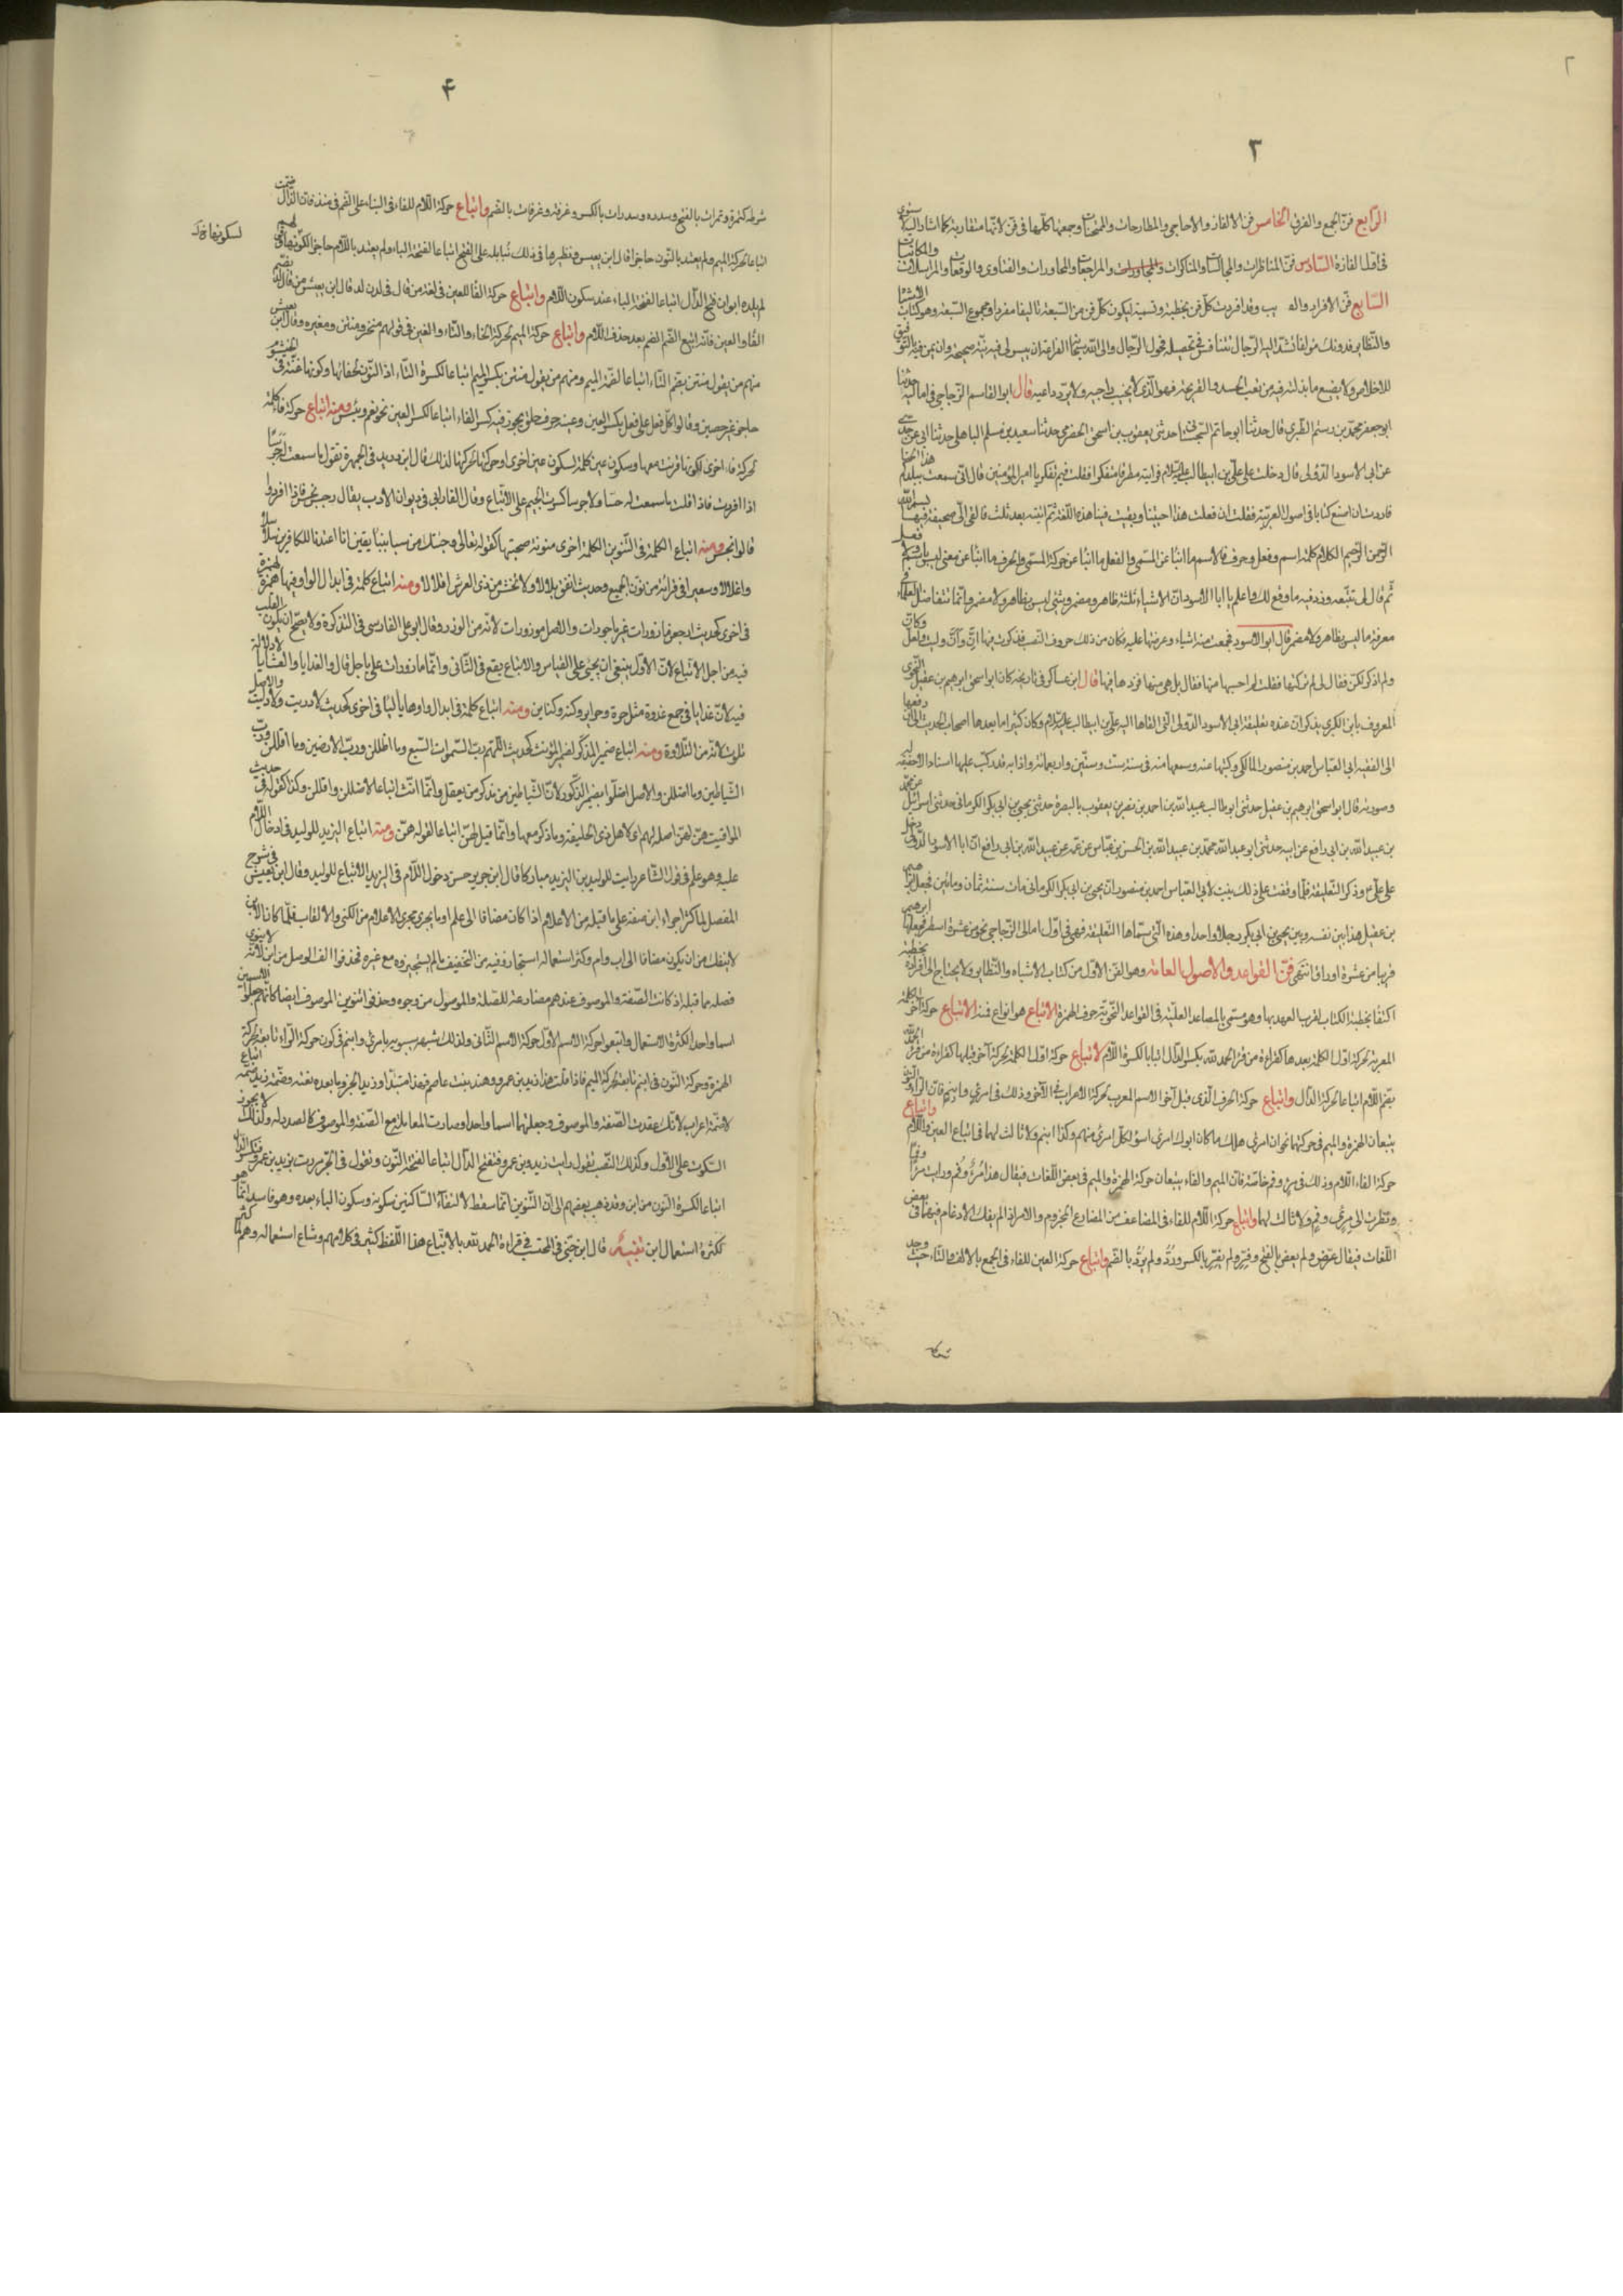 ٢
٣
الرّابع فنّ الجمع والفرق الخامس فنّ الالغاز والاحاجى والمطارحات والممتحنات وجمعتها كلّها فى فنّ لانّها متقاربة كما اشار اليه الاسنوى
فى اوّل الغازه السّادس فنّ المناظرات والمجالسات والمذاكرات والمراجعات والمحاورات والفتاوى والواقعات والمراسلات والمكاتبات
السّابع فنّ الافراد والغرايب وقد افردت كلّ فنّ بخطبة وتسمية ليكون كلّ فنّ من السّبعة تاليفا مفردا ومجموع السّبعة هو كتاب الاشباه
والنّظاير فدونك مؤلفا تشدّ اليه الرّحال وتتنافس فى تحصيله فحول الرّجال والى الله سبحانه الضراعة ان ييسر لى فيه نيّة صحيحة وان يمن فيه بالتّوفيق
للاخلاص ولا يضيع ما بذلته فيه من تعب الجسد والقريحة فهو الّذى لا يخيب راجيه ولا يردّ داعيه قال ابو القاسم الزّجاجى فى اماليه حدّثنا
ابو جعفر محمّد بن رستم الطّبرى قال حدّثنا ابو حاتم السّجستانى حدّثنى يعقوب بن اسحق الحضرمى حدّثنا سعيد بن مسلم الباهلى حدّثنا ابى عن جدّى
عن ابى الاسود الدّؤلى قال دخلت على علىّ بن ابيطالب عليه السّلام فرايته مطرقا متفكرا فقلت فيم تفكر يا امير المؤمنين قال انّى سمعت ببلدكم هذا لحنا
فاردت ان اصنع كتابا فى اصول العربيّة فقلت ان فعلت هذا احييتنا وبقيت فينا هذه اللّغة ثمّ اتيته بعد ثلث فالقى الىّ صحيفة فيها بسم الله
الرّحمن الرّحيم الكلام كلّه اسم وفعل وحرف فالاسم ما انبأ عن المسمّى والفعل ما انبأ عن حركة المسمّى والحرف ما انبأ عن معنى ليس باسم ولا فعل
ثمّ قال لى تتبّعه وزد فيه ما وقع لك واعلم يا ابا الاسود انّ الاشياء ثلثة ظاهر ومضمر وشئ ليس بظاهر ولا مضمر وانّما تتفاضل العلماء فى
معرفة ما ليس بظاهر ولا مضمر قال ابو الاسود فجمعت منه اشياء وعرضتها عليه فكان من ذلك حروف النّصب فذكرت فيها انّ وانّ وليت ولعلّ وكانّ
ولم اذكر لكنّ فقال لى لم تركتها فقلت لم احسبها منها فقال بل هى منها فزدها فيها قال ابن عساكر فى تاريخه كان ابو اسحق ابرهيم بن عقيل النّحوى
المعروف بابن المكبرى يذكر انّ عنده تعليقة ابى الاسود الدّؤلى الّتى القاها اليه علىّ بن ابيطالب عليه السّلام وكان كثيرا ما يعد بها اصحاب الحديث الى ان دفعها
الى الفقيه ابى العبّاس احمد بن منصور المالكى وكتبها عنه وسمعها منه فى سنة ستّ وستّين واربعمائة واذا به قد ركّب عليها اسنادا لا حقيقة له
وصورته قال ابو اسحق ابرهيم بن عقيل حدّثنى ابو طالب عبيد الله بن احمد بن نصر بن يعقوب بالبصرة حدّثنى يحيى بن ابى بكر الكرمانى حدّثنى اسرائيل عن محمّد
بن عبيد الله بن ابى رافع عن ابيه حدّثنى ابو عبد الله محمّد بن عبيد الله بن الحسن بن عيّاش عن عمّه عن عبيد الله بن ابى رافع انّ ابا الاسود الدّؤلى دخل
على علىّ ع وذكر التّعليقة فلمّا وقفت على ذلك بينت لابى العباس احمد بن منصور انّ يحيى بن ابى بكر الكرمانى مات سنة ثمان ومائتين فجعل ابرهيم
بن عقيل هذا بين نفسه وبين يحيى بن ابى بكر رجلا واحدا وهذه الّتى سمّاها التّعليقة فهى فى اوّل امالى الزّجاجى نحو من عشرة اسطر فجعلها ابرهيم
قريبا من عشرة اوراق انتهى فنّ القواعد والاصول العامّة وهو الفنّ الاوّل من كتاب الاشباه والنّظاير ولا يحتاج الى افراده بخطبة
اكتفا بخطبة الكتاب لقرب العهد بها وهو مسمّى بالمصاعد العليّة فى القواعد النّحويّة حرف الهمزة الاتباع هو انواع فمنه الاتباع حركة آخر الكلمة
المعربة لحركة اوّل الكلمة بعدها كقراءة من قرأ الحمد لله بكسر الدّال اتباعا لكسرة اللّام اتباع حركة اوّل الكلمة لحركة آخر قبلها كقراءة من قرأ الحمد لله
بضمّ اللّام اتباعا لحركة الدّال واتباع حركة الحرف الّذى قبل آخر الاسم المعرب لحركة الاعراب فى الآخر وذلك فى امرئ وابنم فانّ الراء والنّون
يتبعان الهمزة والميم فى حركتهما نحو ان امرئ هلك ما كان ابوك امرئ اسوء لكلّ امرئ منهم وكذا ابنم ولا ثالث لهما فى اتباع العين واللّام واتباع
حركة الفاء اللّام وذلك فى مرء وفم خاصّة فانّ الميم والفاء يتبعان حركة الهمزة والميم فى بعض اللّغات فيقال هذا مرؤ وفم ورايت مرأ وفما
ونظرت الى مرئ وفم ولا ثالث لهما واتباع حركة اللّام للفاء فى المضاعف من المضارع المجزوم والامر اذا لم يفك الادغام فيهما فى بعض
اللّغات فيقال عضّ ولم يعضّ بالفتح وفرّ ولم يفرّ بالكسر وردّ ولم يردّ بالضّم واتباع حركة العين للفاء فى الجمع بالالف والتّاء حيث وجد
شرطه
٤
شرطه كتمرة وتمرات بالفتح وسدره وسدرات بالكسر وغرفة وغرفات بالضّم واتباع حركة اللّام للفاء فى البناء على الضّم فى منذ فانّ الذّال ضمّت
اتباعا لحركة الميم ولم يعتد بالنّون حاجزا قال ابن يعيش ونظيرها فى ذلك بناء بله على الفتح اتباعا لفتحة الباء ولم يعتد باللّام حاجزا لسكونها فهى لهم
لسكونها
لم يلده ابوان فتح الدّال اتباعا لفتحة الياء عند سكون اللّام واتباع حركة الفا للعين فى لغة من قال فى لدن لد قال ابن يعيش من قال لد بضمّ
الفا والعين فانّه اتبع الضّم الضم بعد حذف اللّام واتباع حركة الميم لحركة الخاء والتّاء والغين فى قولهم منخر ومنتن ومغيره وقال ابن يعيش
منهم من يقول منتن بضم التّاء اتباعا لضمّة الميم ومنهم من يقول منتن بكسر الميم اتباعا لكسرة التّاء اذ النّون لخفائها وكونها غنّة فى الخيشوم
حاجز غير حصين وقالوا كل فعل على فعل بكسر العين وعينه حرف حلق يجوز فيه كسر الفاء اتباعا لكسر العين نحو نعم وبئس ومنه اتباع حركة فاء كلمة
لحركة فاء اخرى لكونها قرنت معها وسكون عين كلمة لسكون عين اخرى او حركتها لحركتها كذلك قال ابن دريد فى الجمهرة تقول ما سمعت له جرسا
اذا افردت فاذا قلت ما سمعت له حسّا ولا جرسا كسرت الجيم على الاتّباع وقال الفارابى فى ديوان الادب يقال رجس نجس فاذا افردوا
قالوا نجس ومنه اتباع الكلمة فى التّنوين لكلمة اخرى منونة صحبتها كقوله تعالى وجئتك من سبأ بنبأ يقين انا اعتدنا للكافرين سلاسلا
واغلالا وسعيرا فى قرائة من نون الجميع وحديث انفق بلالا ولا تخش من ذى العرش اقلالا ومنه اتباع كلمة فى ابدال الواو فيها همزة لهمزة
فى اخرى كحديث ارجعن مأزورات غير مأجورات والاصل موزورات لانّه من الوزر وقال ابو على الفارسى فى التّذكرة ولا يصحّ ان يكون القلب
فيه من اجل الاتباع لانّ الاوّل ينبغى ان يجئ على القياس والاتباع يقع فى الثّانى وانّما مأزورات على ياجل قال والغدايا والعشايا لا دلالة
فيه لانّ غدايا فى جمع غدوة مثل حرة وحراير وكنة وكناين ومنه اتباع كلمة فى ابدال واوها يا لياء فى اخرى كحديث لا دريت ولا تليت والاصل
تلوت لانّه من التّلاوة ومنه اتباع ضمير المذكر لضمير المؤنّث كحديث اللّهم ربّ السّموات السّبع وما اظللن وربّ الارضين وما اقللن وربّ
الشّياطين وما اضللن والاصل اضلّوا بضمير الذّكور لانّ الشّياطين من مذكر من يعقل وانّما انّث اتباعا لاظللن واقللن وكذا قوله فى حديث
المواقيت هنّ لهنّ اصله لهم اى لاهل ذى الحليفة وما ذكر معها وانّما قيل لهنّ اتباعا لقوله هنّ ومنه اتباع اليزيد للوليد فى ادخال اللّام
عليه وهو علم فى قول الشّاعر رايت الوليد بن اليزيد مباركا قال ابن جرير حسن دخول اللّام فى اليزيد لاتّباع الوليد وقال ابن يعيش فى شرح
المفصل لما كثر اجراء ابن صفة على ما قبله من الاعلام اذا كان مضافا الى علم او ما يجرى مجرى الاعلام من الكنى والالقاب فلمّا كان الابن
لا ينفك من ان يكون مضافا الى اب وام وكثر استعماله استجازوا فيه من التخفيف ما لم يستجيزوه مع غيره فحذفوا الف الوصل من ابن لانّه لا ينوى
فصله ممّا قبله اذ كانت الصّفة والموصوف عندهم مضارعة للصّلة والموصول من وجوه وحذفوا تنوين الموصوف ايضا كانّهم جعلوا الاسمين
اسما واحدا لكثرة الاستعمال واتبعوا حركة الاسم الاوّل حركة الاسم الثّانى ولذلك شبهه سيبويه بامرئ وابنم فى كون حركة الرّاء تابعة لحركة
الهمزة وحركة النّون فى ابنم تابعة لحركة الميم فاذا قلت هذا زيد بن عمرو وهند بنت عاصم فهذا مبتدأ وزيد الخبر وما بعده نعته وضمّة زيد ضمّة اتباع
لا ضمّة اعراب لانّك عقدت الصّفة والموصوف وجعلتهما اسما واحدا وصارت المعاملة مع الصّفة والموصوف كالصدر له ولذلك لا يجوز
السّكوت على الاوّل وكذلك النّصب تقول رايت زيد بن عمرو فتفتح الدّال اتباعا لفتحة النّون وتقول فى الجرّ مررت بزيد بن عمرو فتكسر الدّال
اتباعا لكسرة النّون من ابن وقد ذهب بعضهم الى انّ التّنوين انّما سقط لالتقاء السّاكنين سكونه وسكون الباء بعده وهو فاسد انّما هو
لكثرة استعمال ابن تنبيه قال ابن جنّى فى المحتسب فى قراءة الحمد لله بالاتباع هذا اللّفظ كثير فى كلامهم وشاع استعماله وهم لما كثر